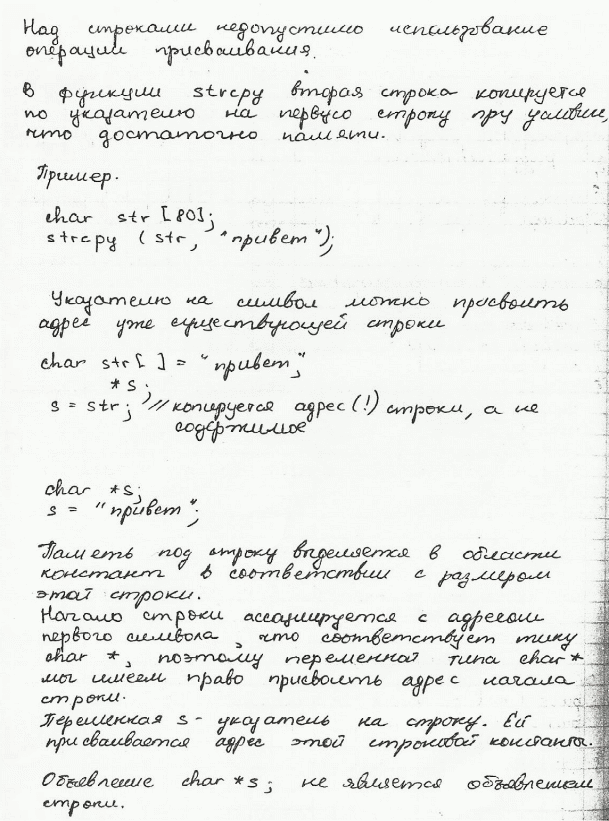 Над строками недопустимо использование
операции присваивания.
В функции strcpy вторая строка копируется
по указателю на первую строку при условии,
что достаточно памяти.
Пример.
char str [80];
strcpy ( str, "привет");
Указателю на символ можно присвоить
адрес уже существующей строки
char str[ ] = "привет";
*s;
s = str; // копируется адрес (!) строки, а не
содержимое
char *s;
s = "привет";
Память под строку выделяется в области
констант в соответствии с размером
этой строки.
Начало строки ассоциируется с адресом
первого символа, что соответствует типу
char *, поэтому переменной типа char *
мы имеем право присвоить адрес начала
строки.
Переменная s - указатель на строку. Ей
присваивается адрес этой строковой константы.
Объявление char *s; не является объявлением
строки.